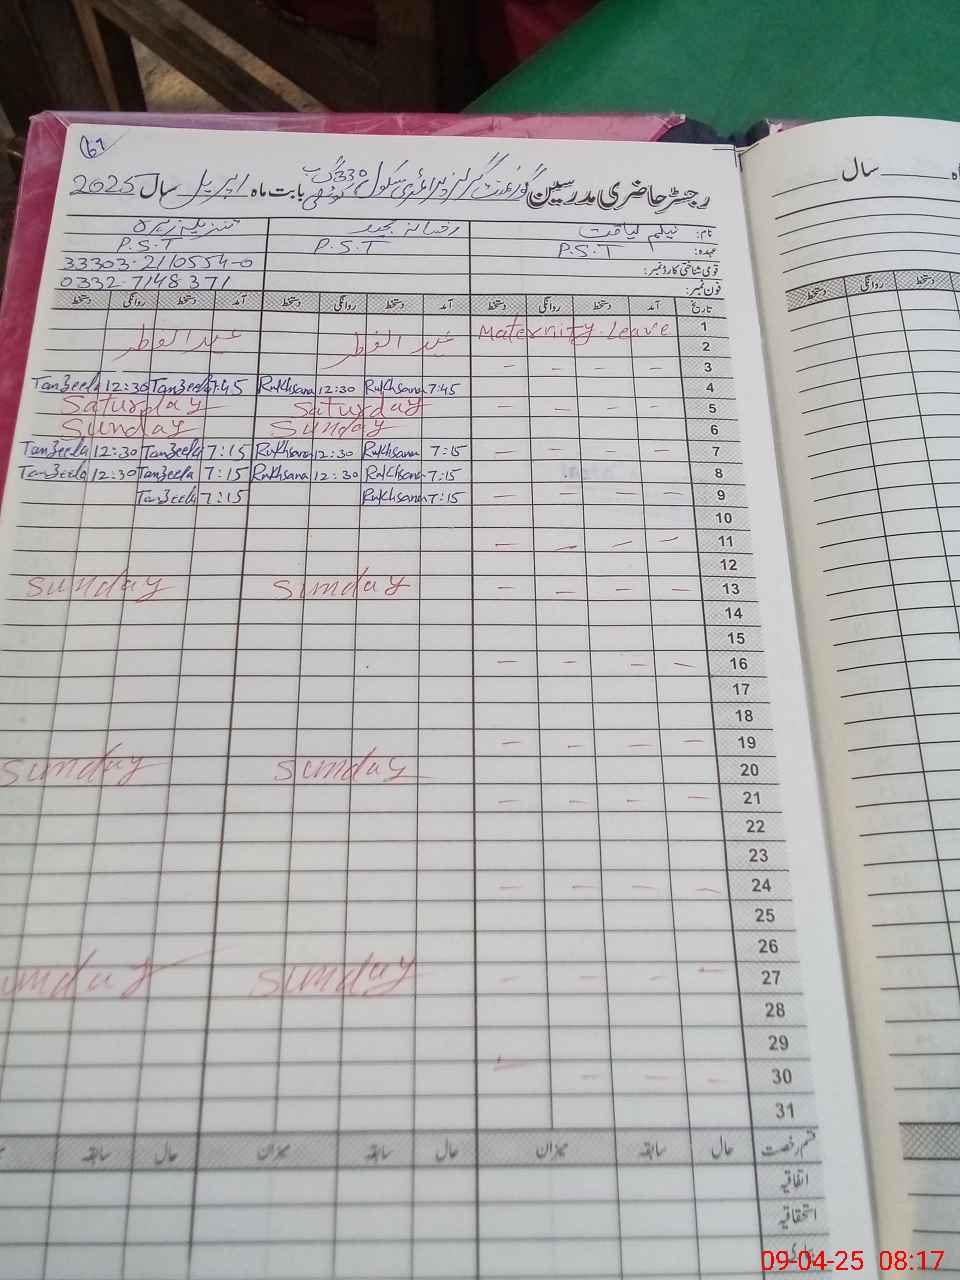 67
رجسٹر حاضری مدرسین گورنمنٹ گرلز پرائمری سکول 330 گ ب بابت ماہ اپریل سال 2025
نام: نیلم لیاقت رخسانہ مجید تنزیلہ زہرہ
عہدہ: P.S.T P.S.T P.S.T
قومی شناختی کارڈ نمبر: 33303-2110554-0
فون نمبر: 0332-7148371
تاریخ آمد دستخط روانگی دستخط آمد دستخط روانگی دستخط آمد دستخط روانگی دستخط
1 Maternity Leave عید الفطر عید الفطر
2
3 — — — —
4 7:45 Rukhsana 12:30 Rukhsana 7:45 Tanzeela 12:30 Tanzeela
5 — — — — Saturday Saturday
6 Sunday Sunday
7 — — — — 7:15 Rukhsana 12:30 Rukhsana 7:15 Tanzeela 12:30 Tanzeela
8 7:15 Rukhsana 12:30 Rukhsana 7:15 Tanzeela 12:30 Tanzeela
9 — — — — 7:15 Rukhsana 7:15 Tanzeela
10
11 — — — —
12
13 — — — — Sunday Sunday
14
15
16 — — — —
17
18
19 — — — —
20 Sunday Sunday
21 — — — —
22
23
24 — — — —
25
26
27 — — — — Sunday Sunday
28
29
30 — — — —
31
قسم رخصت حال سابقہ میزان حال سابقہ میزان حال سابقہ
اتفاقیہ
استحقاقیہ
سال
دستخط روانگی دستخط
09-04-25 08:17